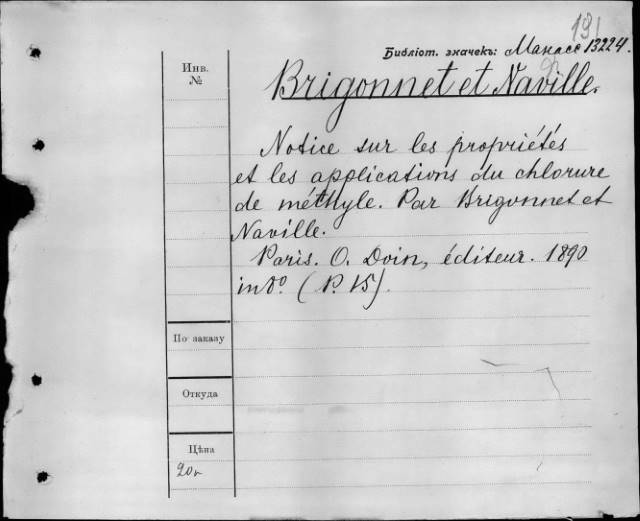 131
Библіот. значекъ: Манасс 13224.
Инв.
№
Brigonnet et Naville.
Notice sur les propriétés
et les applications du chlorure
de méthyle. Par Brigonnet et
Naville.
Paris. O. Doin, éditeur. 1890
in 8º. (P. 15).
По заказу
Откуда
Цѣна
20к